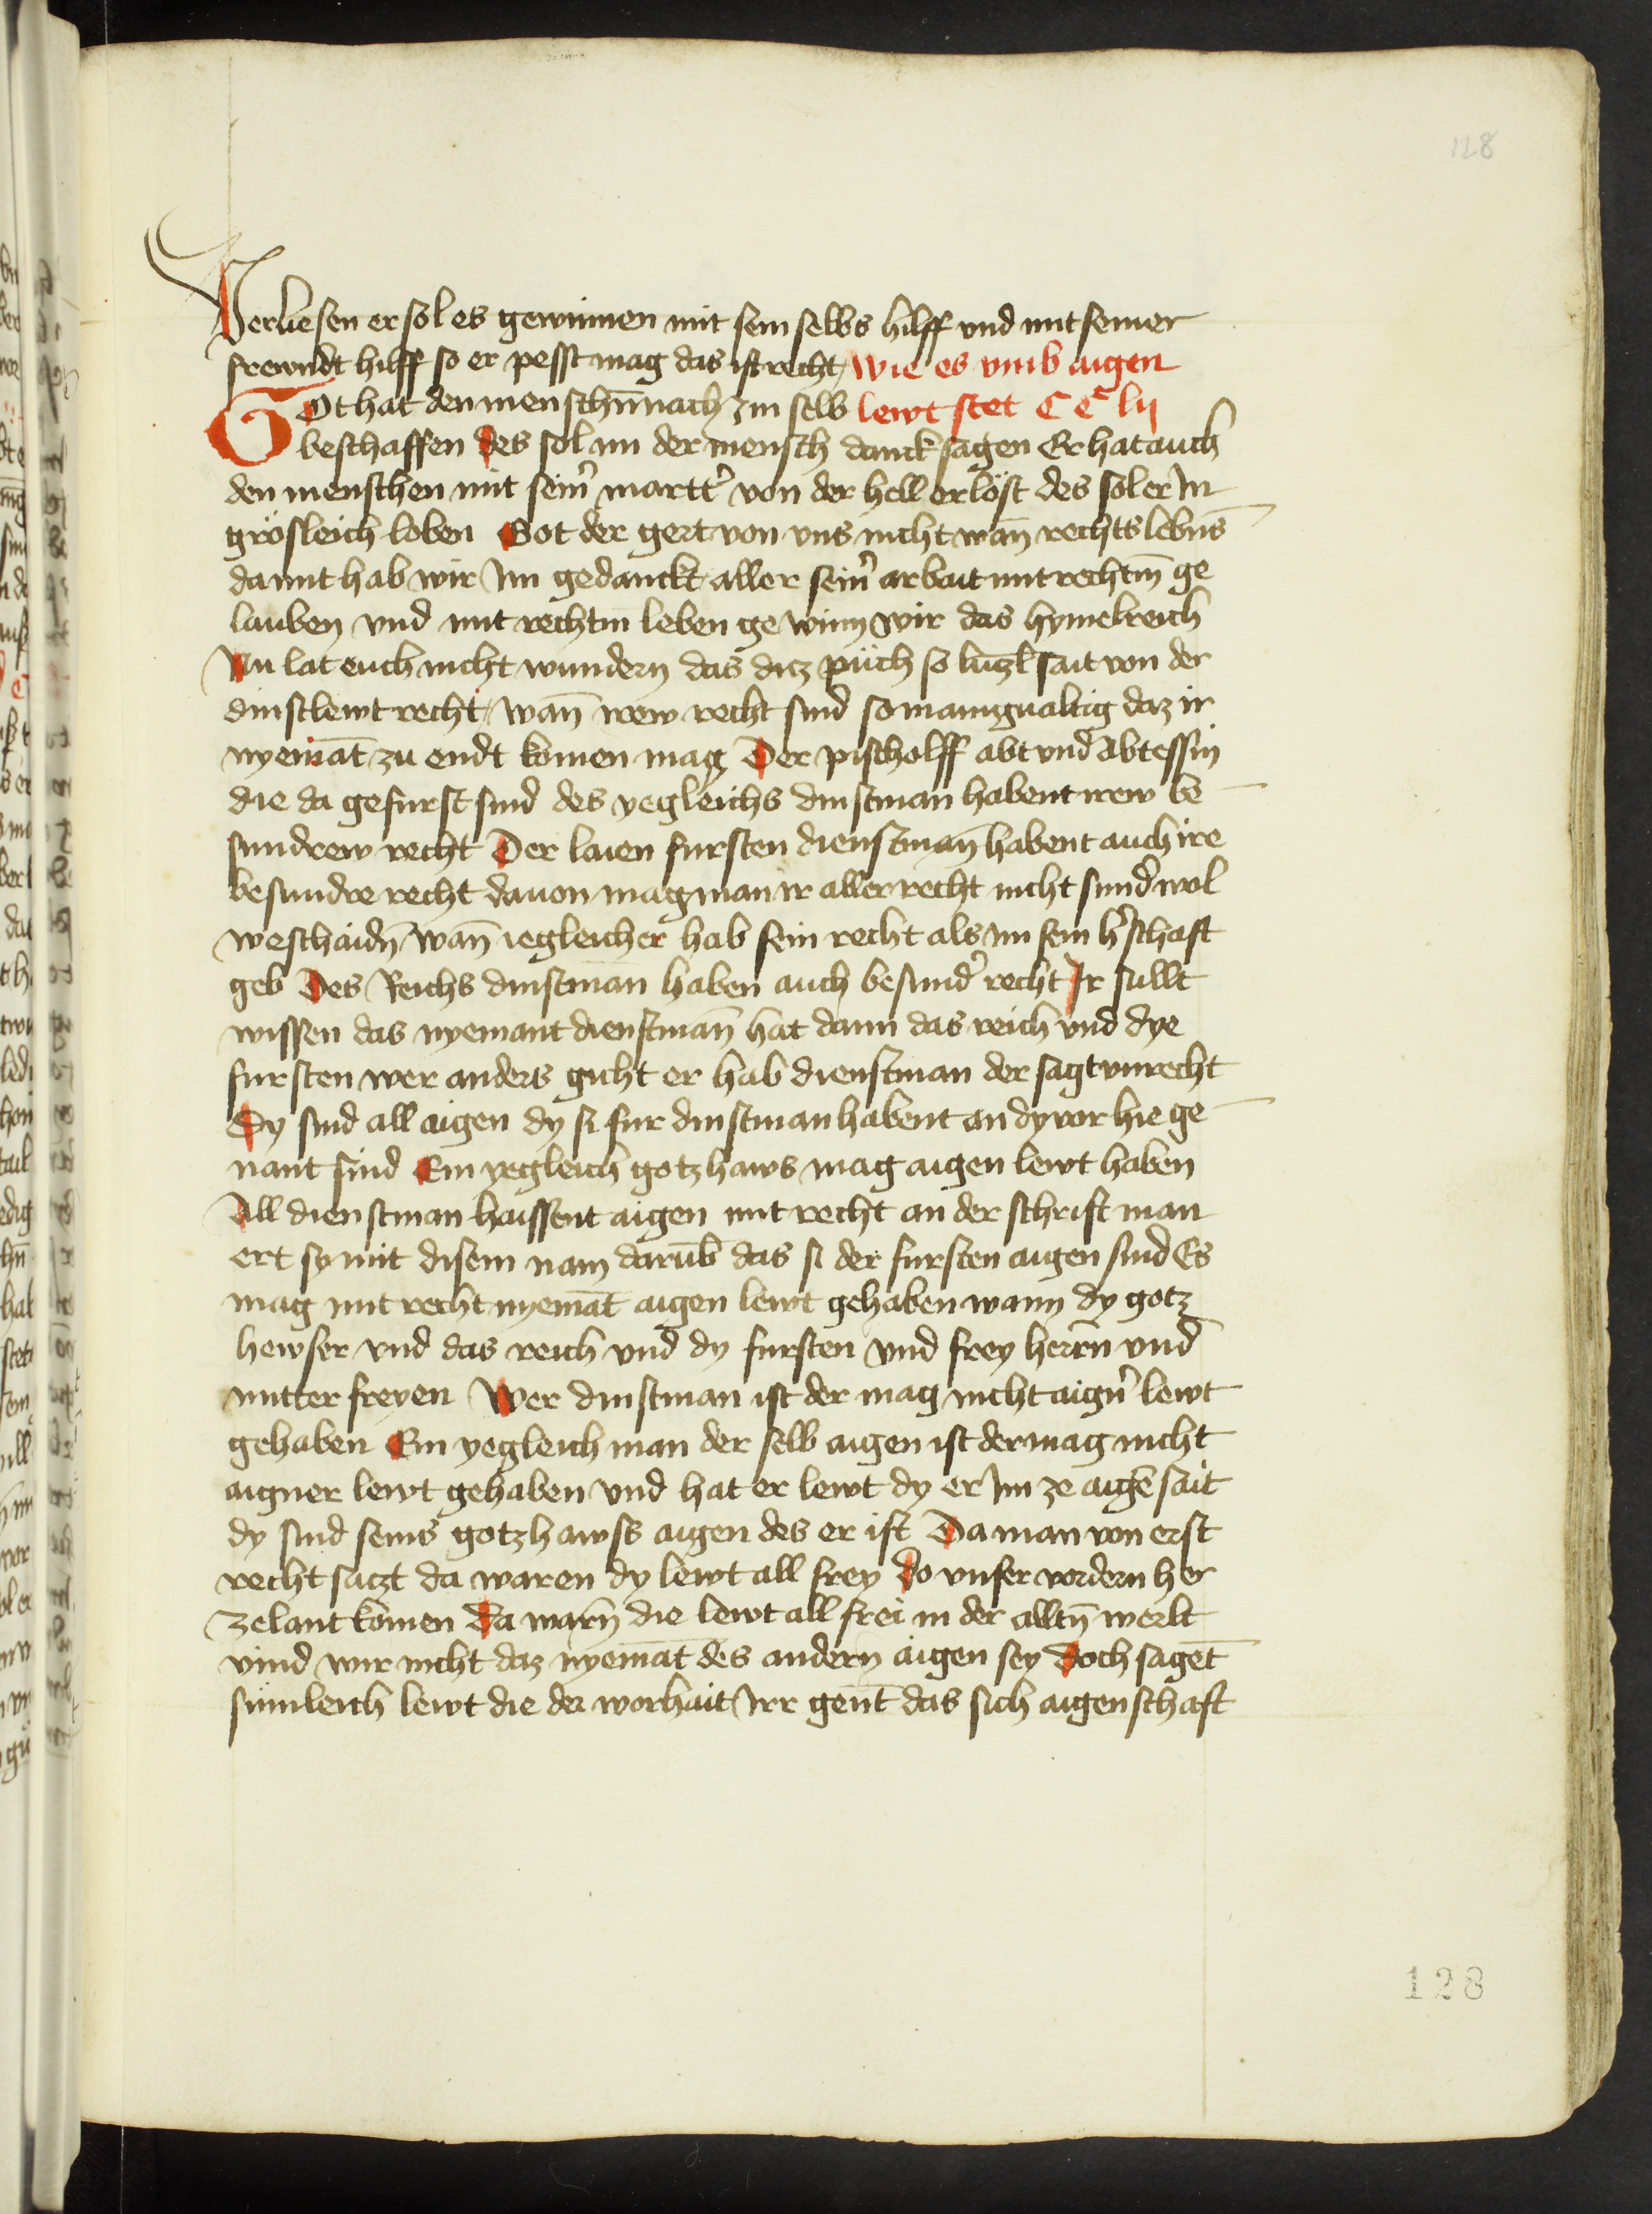 128
Verliesen er sol es gewinnen mit sein selbs hilff vnd mit seiner
frewndt hilff so er pesst mag das ist recht Wie es vmb aigen
GOt hat den menschn̄ nach im selb lewt stet CCͨ lij
beschaffen des sol im der mensch danck sagen Er hat auch
den menschen mit sein̛ martt̛ von der hell erlöst des sol er In
grösleich loben Got der gert von vns nicht wan̄ rechts lebn̄s
damit hab wir Im gedanckt aller sein̛ arbait mit rechtm̄ ge
lauben vnd mit rechtm leben ge winn wir das hymelreich
Nu lat euch nicht wundern das ditz püch so lutzl sait von der
dinstlewt recht wan̄ irew recht sind so manigualtig daz ir
nyemāt zu endt komen mag Der pischolff abt vnd Abtessin
die da gefurst sind des yegleichs dinstman habent irew be
sundrew recht Der laien fursten dienstman̄ habent auch ire
besundre recht dauon mag man ir aller recht nicht sund̛ wol
weschaidn̄ wan̄ iegleicher hab sein recht als im sein h̛schaft
geb Des Reichs dinstman haben auch besund̛ recht Ir sullt
wissen das nyemant dienstman̄ hat dann das reich vnd dye
fursten wer anders gicht er hab dienstman der sagt vnrecht
Dy sind all aigen dy si fur dinstman habent an dy vor hie ge
nant sind Ein yegleich gotzhaws mag aigen lewt haben
All dienstman haissent aigen mit recht an der schrift man
ert sy mit disem nam darūb das si der fursten aigen sind Es
mag mit recht nyemāt aigen lewt gehaben wann dy gotz
hewser vnd das reich vnd dy fursten vnd frey herrn̄ vnd
mitter freyen Wer dinstman ist der mag nicht aign̛ lewt
gehaben Ein yegleich man der selb aigen ist der mag nicht
aigner lewt gehaben vnd hat er lewt dy er Im ze aigē sait
dy sind seins gotzhawss aigen des er ist Da man von erst
recht satzt da waren dy lewt all frey Do vnser vordern her
ze lant komen Da warn̄ die lewt all frei in der alltn̄ werlt
vind wir nicht daz nyemāt des andern aigen sey doch sagēt
sumleich lewt die der worhait Irr gēnt das sich aigenschaft
128